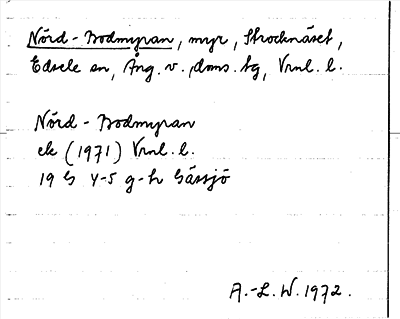 Nörd-Bodmyran, myr, Strocknäset,
Edsele sn, Ång. v. dms. tg, Vrnl. l.
Nörd-Bodmyran
ek (1971) Vrnl. l.
19 G 4-5 g-h Gåssjö
A.-L. W. 1972.